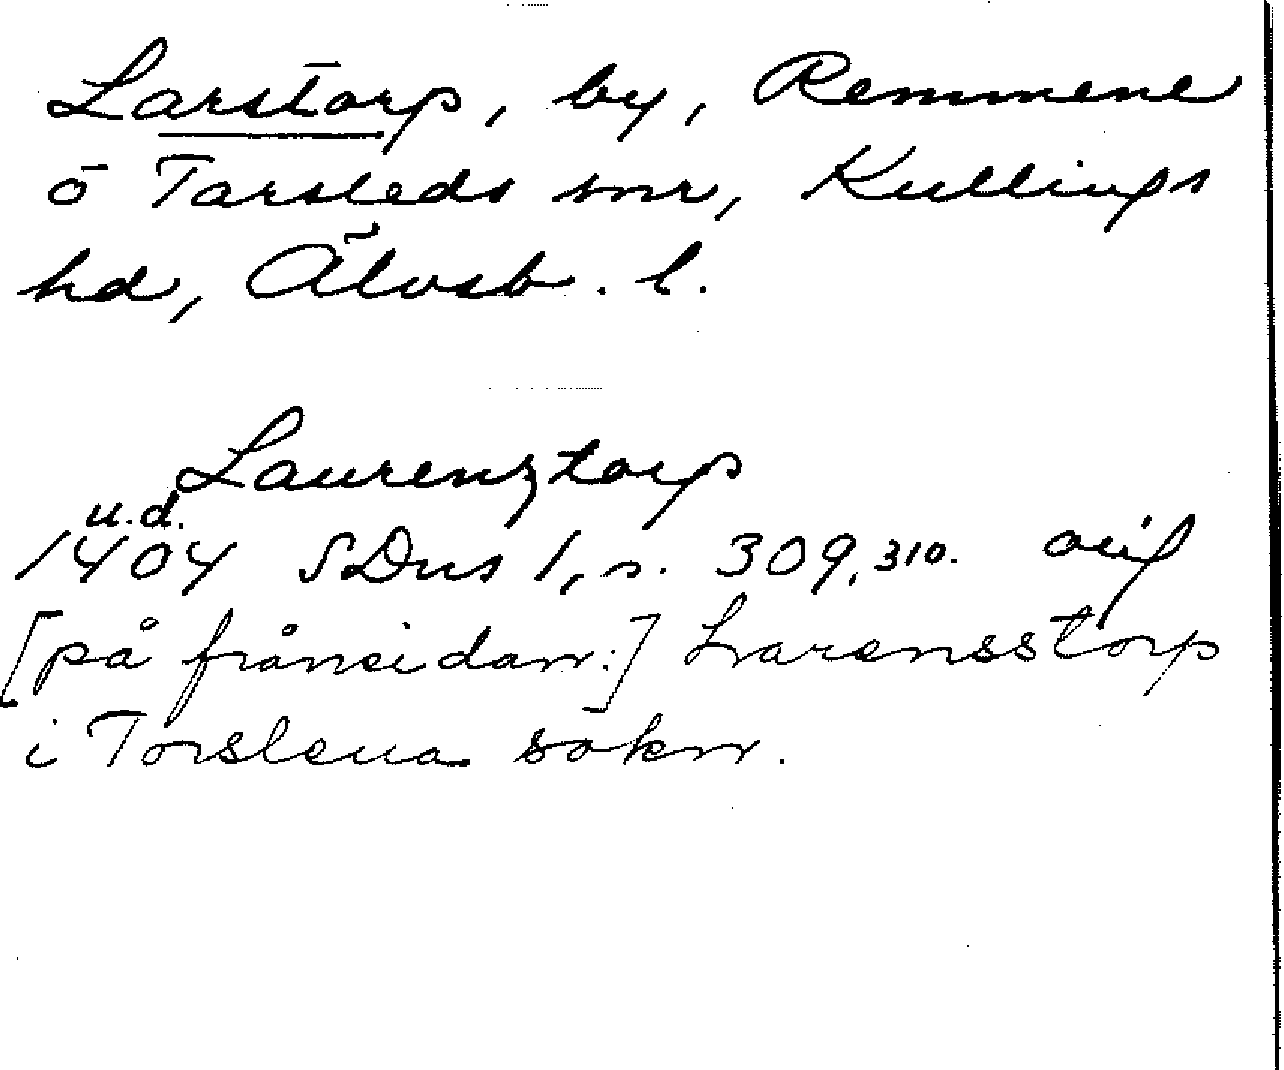 Larstorp, by, Remmene
o Tarsleds snr, Kullings
hd, Älvsb. l.
Laurenztorp
u.d.
1404 SDns 1, s. 309, 310. avs
[på frånsidan:] Larensstorp
i Torslena sokn.